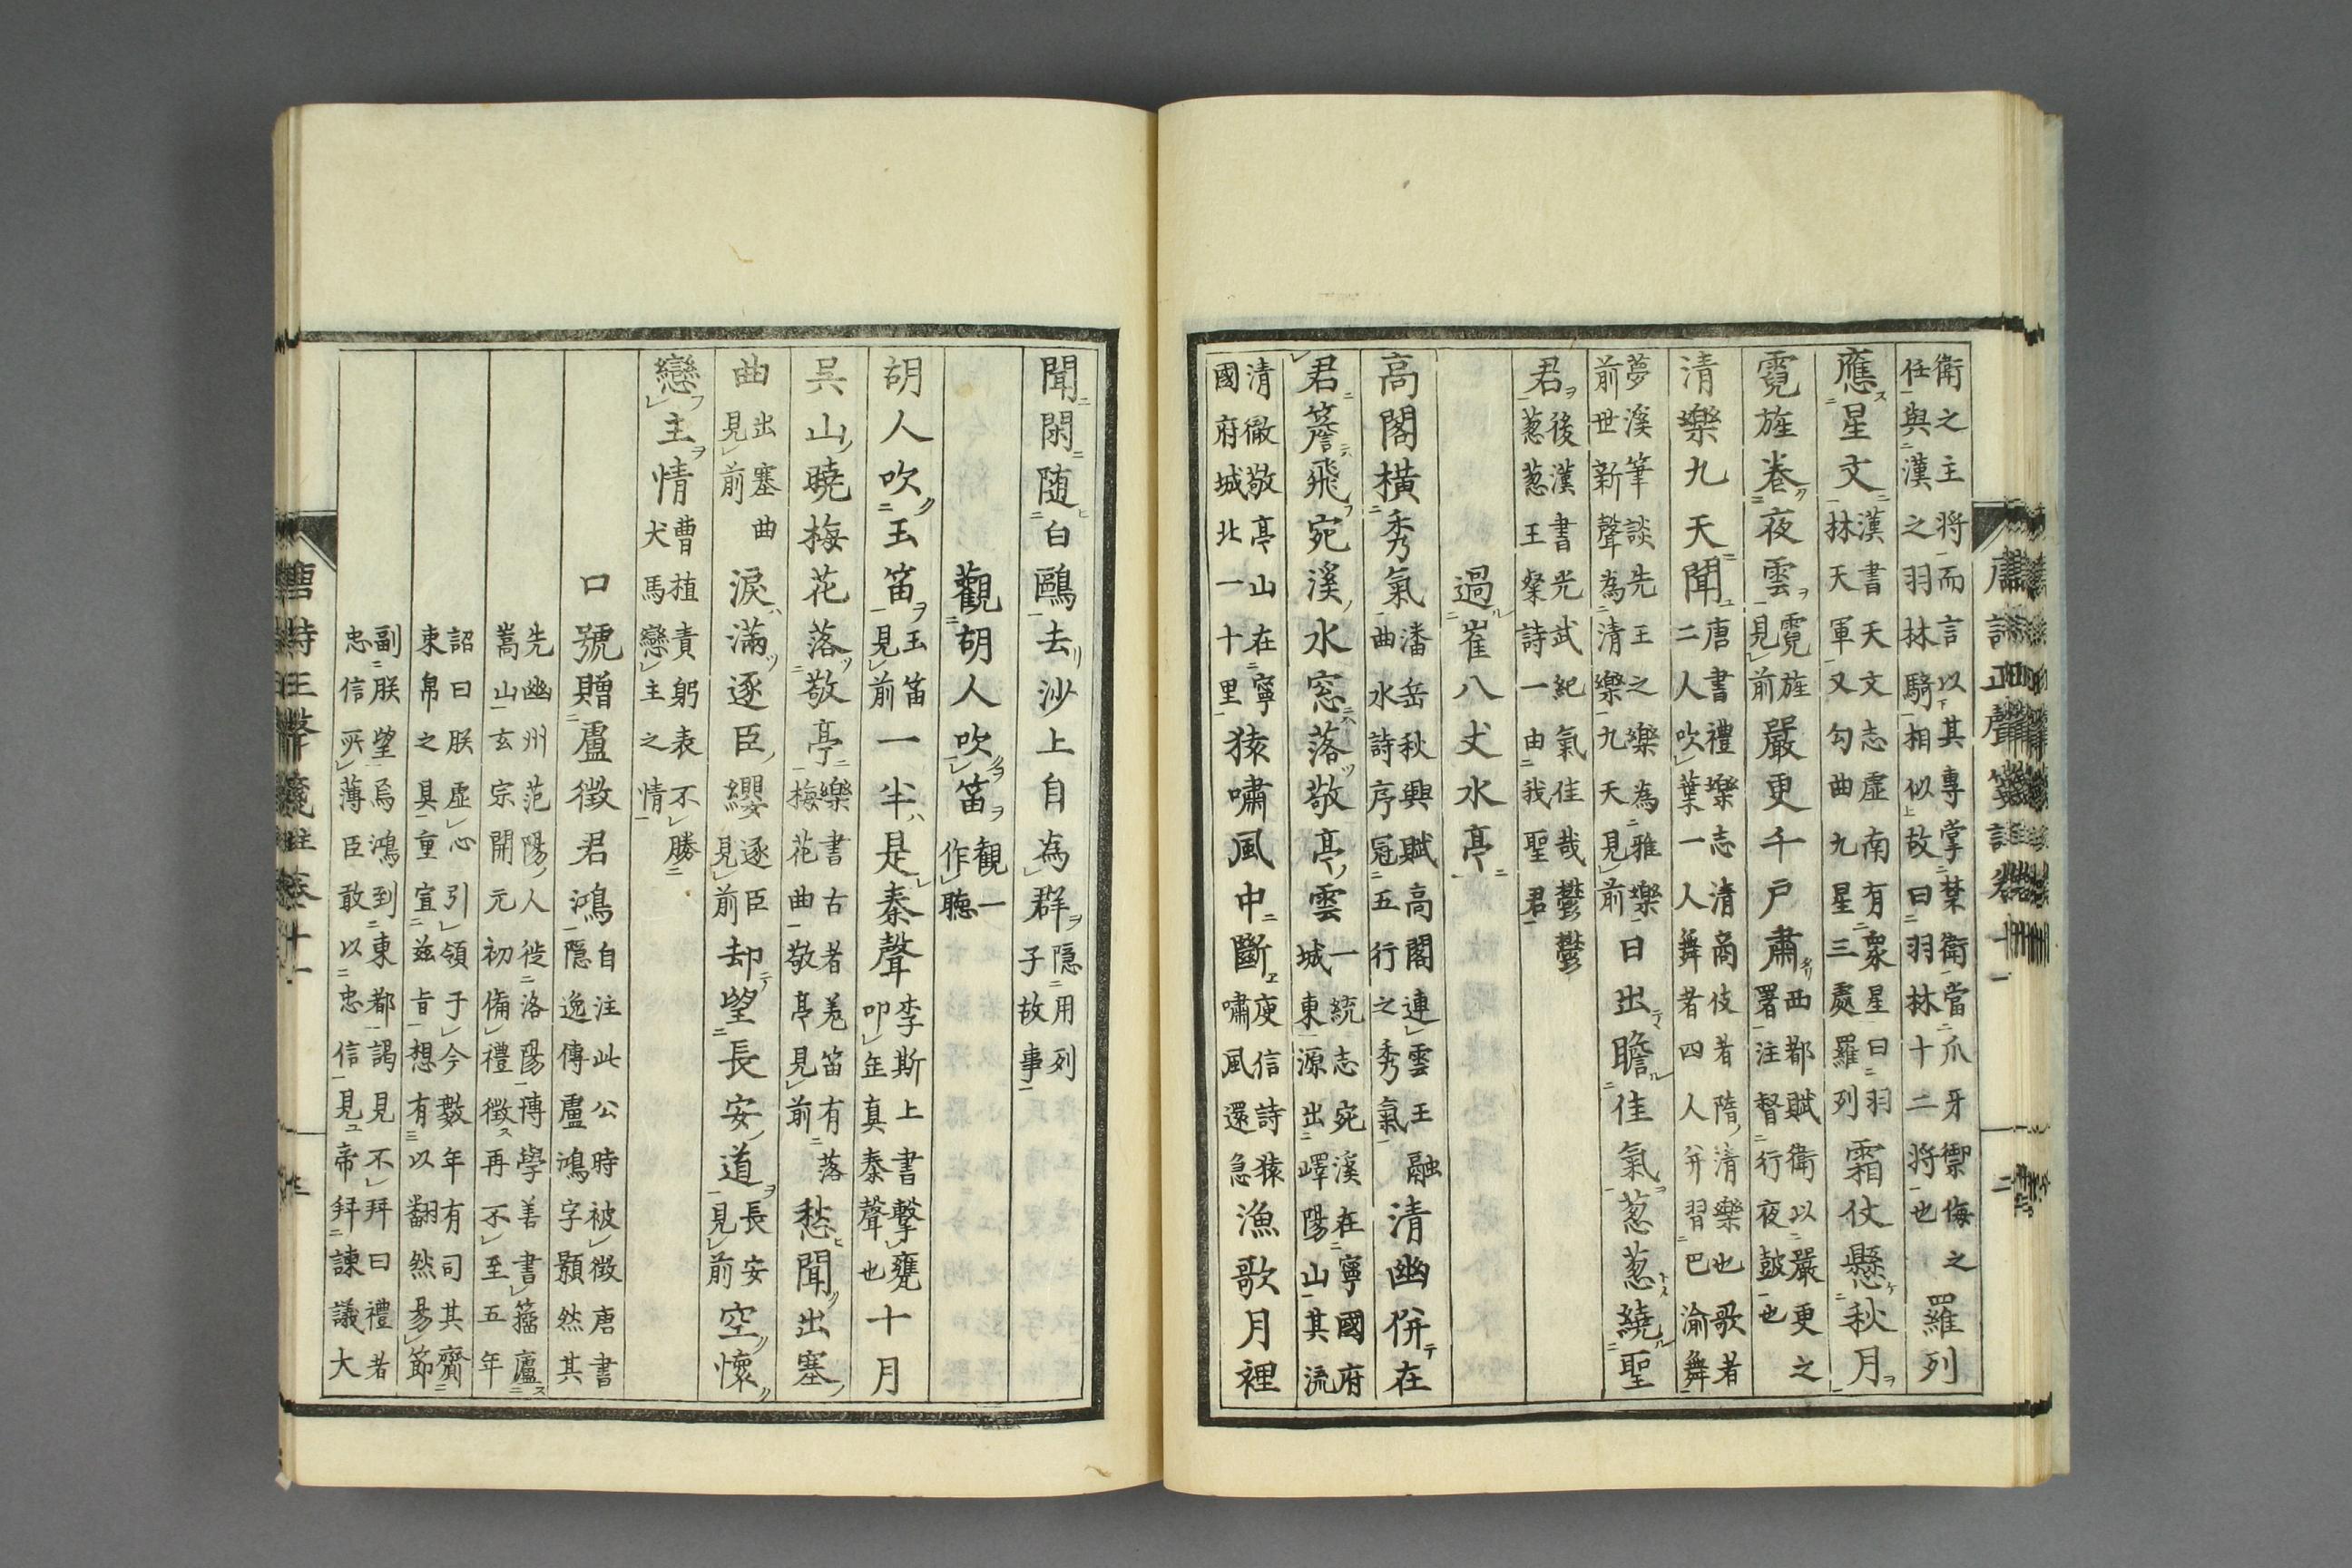 衛之主將而言以其專掌禁衛當爪牙禦侮之任與漢之羽林騎相似故曰羽林十二將也羅列
應星文漢書天文志虛南有衆星曰羽林天軍又勾曲九星三處羅列霜仗懸秋月
霓旌卷夜雲霓旌見前嚴更千戸肅西都賦衛以嚴更之署注督行夜鼓也
清樂九天聞唐書禮樂志清商伎者隋清樂也歌者二人吹葉一人舞者四人并習巴渝舞
夢溪筆談先王之樂為雅樂前世新聲為清樂九天見前日出瞻佳氣葱葱繞聖
君後漢書光武紀氣佳哉鬱鬱葱葱王粲詩一由我聖君
過崔八丈水亭
高閣橫秀氣潘岳秋興賦高閣連雲王融曲水詩序冠五行之秀氣清幽併在
君簷飛宛溪水窓落敬亭雲一統志宛溪在寧國府城東源出嶧陽山其流
清徹敬亭山在寧國府城北一十里猿嘯風中斷庾信詩猿嘯風還急漁歌月裡
聞閑随白鷗去沙上自為群隱用列子故事
觀胡人吹笛觀一作聽
胡人吹玉笛玉笛見前一半是秦聲李斯上書擊甕叩缶真秦聲也十月
吳山曉梅花落敬亭樂書古者羌笛有落梅花曲敬亭見前愁聞出塞
曲出塞曲見前淚滿逐臣纓逐臣見前却望長安道長安見前空懷
戀主情曹植責躬表不勝犬馬戀主之情
口號贈盧徵君鴻自注此公時被徵唐書隱逸傳盧鴻字顥然其
先幽州范陽人徙洛陽博學善書籀廬嵩山玄宗開元初備禮徵再不至五年
詔曰朕虛心引領于今數年有司其齎束帛之具重宣茲旨想有以翻然易節
副朕望焉鴻到東都謁見不拜曰禮者忠信所薄臣敢以忠信見帝拜諫議大
唐詩正聲箋註卷十一
二